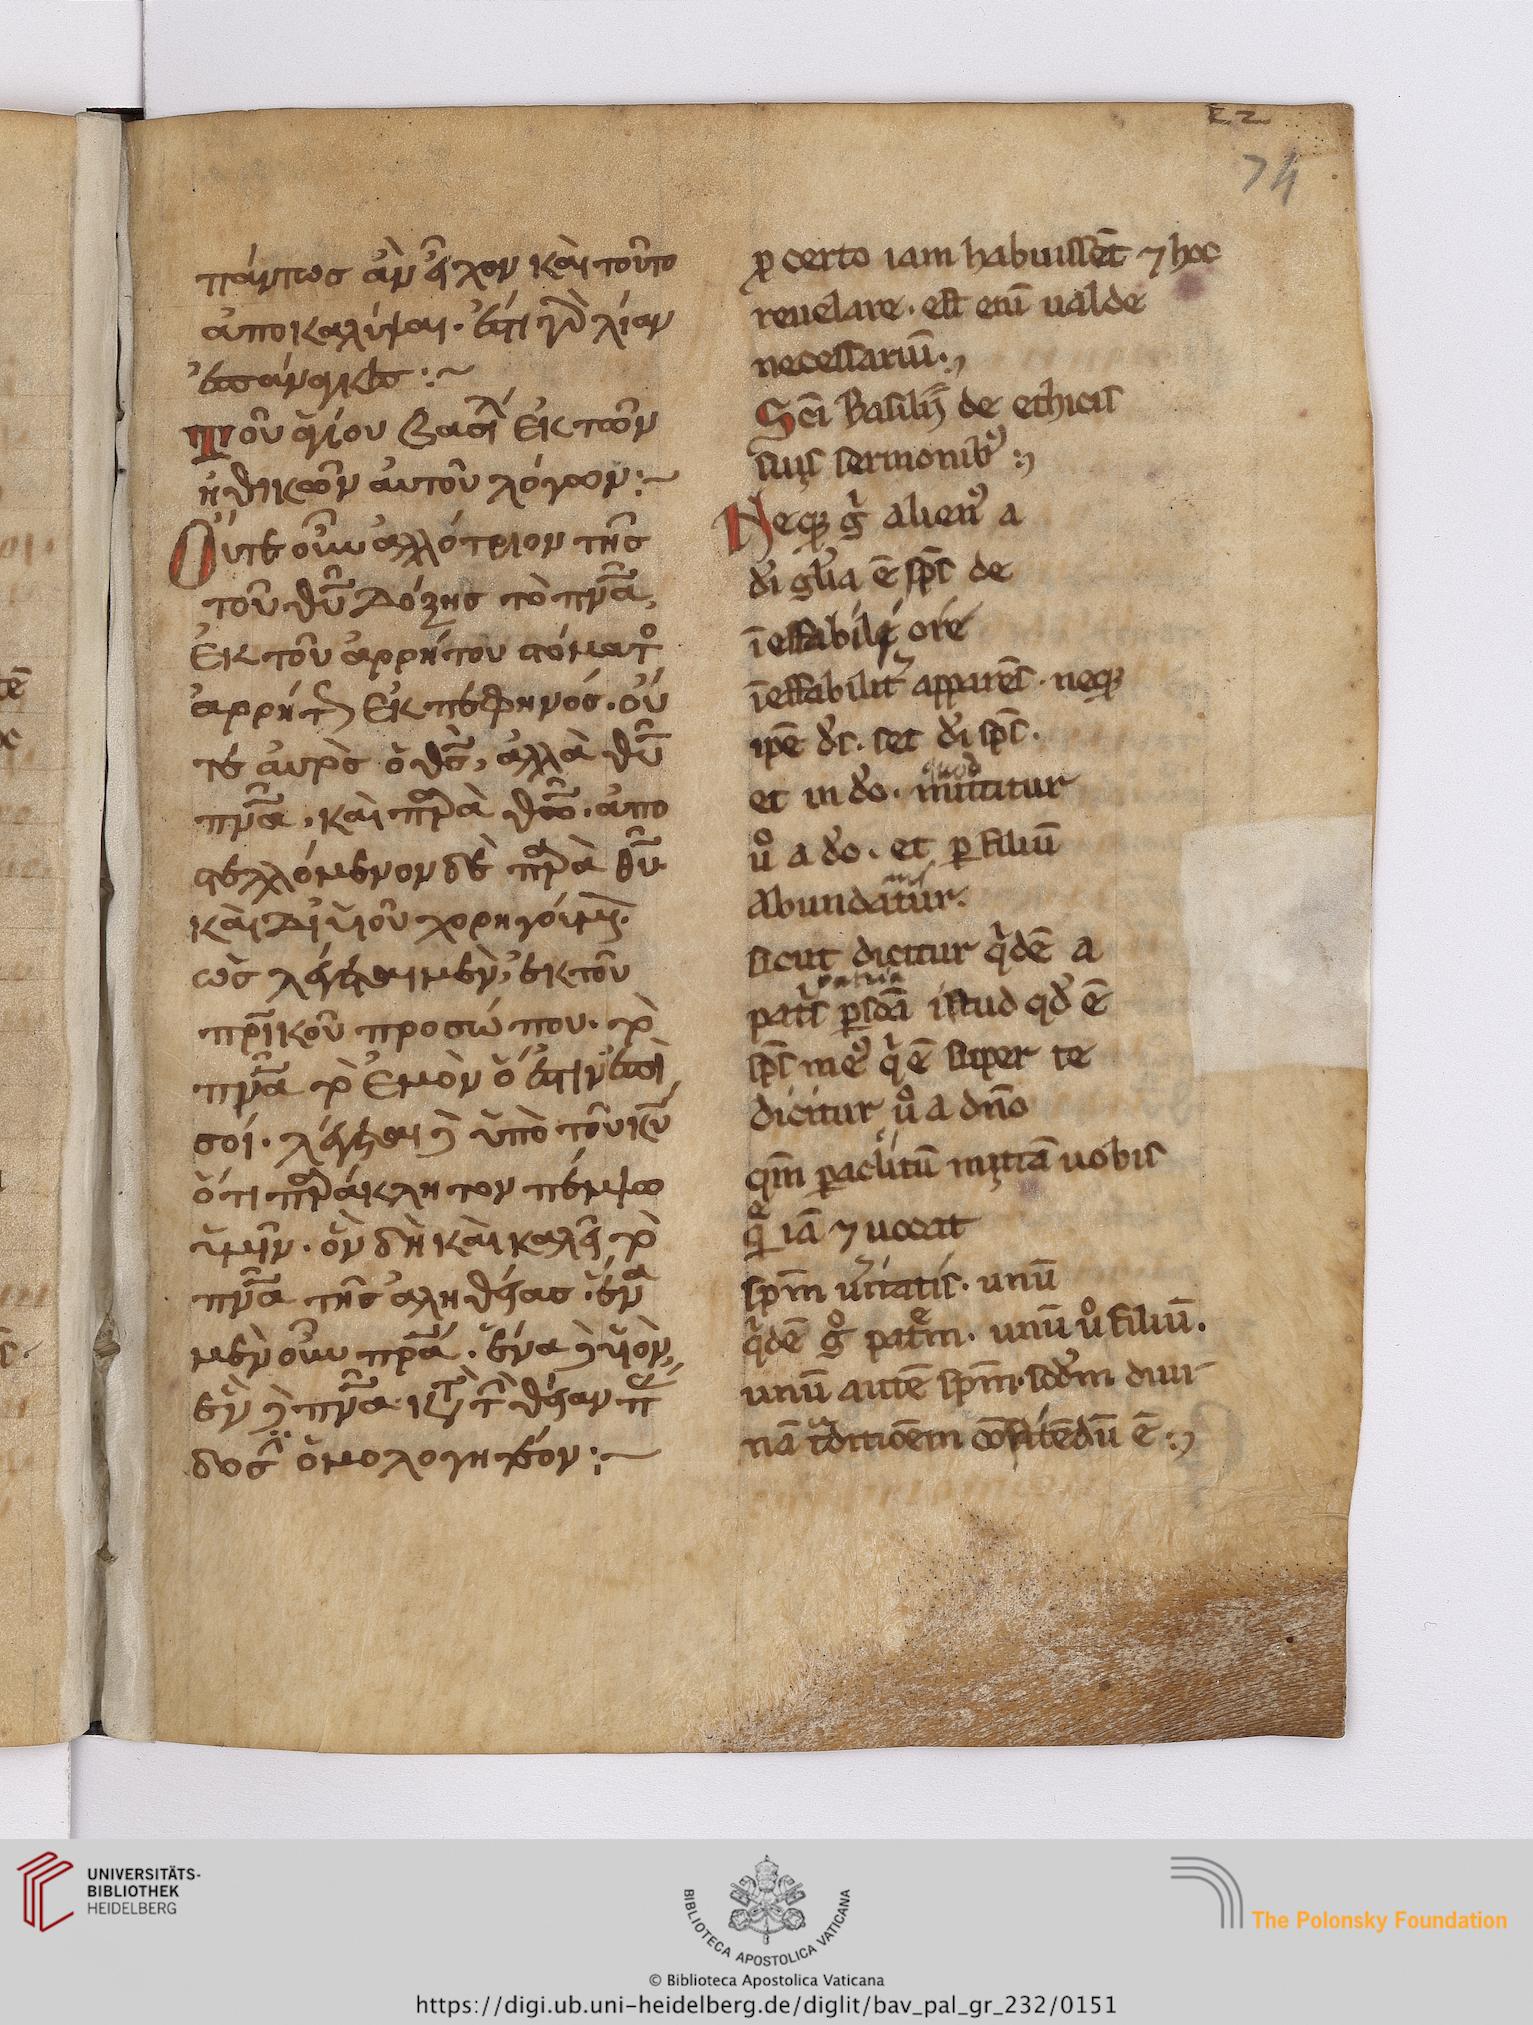 74
πάντως ἂν εἶχον καὶ τοῦτο
ἀποκαλύψαι· ἔστι γὰρ λίαν
ἐπάναγκες :~
Τοῦ ἁγίου βασιλ ἐκ τῶν
ἠθικῶν αὐτοῦ λόγων :~
Οὔτε οὖν ἀλλότριον τῆς
τοῦ θυ δόξης τὸ πνα,
ἐκ τοῦ ἀρρήτου στόματο
ἀρρήτως ἐκπεφηνός· οὔ
τε αὐτὸς ὁ θς, ἀλλὰ θυ
πνα, καὶ παρὰ θω· ἀπο
στελλόμενον δὲ παρὰ θυ
καὶ δι υἱοῦ χορηγούμεν·
ὡς λέγεται μὲν, ἐκ τοῦ
πρικοῦ προσώπου· τὸ
πνα τὸ ἐμὸν ὅ ἐστιν ἐπὶ
σοί· λέγεται δὲ ὑπὸ τοῦ κυ
ὅτι παράκλητον πέμψω
ὑμῖν· ὃν δὴ καὶ καλεῖ τὸ
πνα τῆς ἀληθείας· ἕνα
μὲν οὖν πρα· ἕνα δὲ υἱὸν,
ἓν δὲ πνα· κατὰ τὴν θείαν πα
δοσ ὁμολογητέον :~
p certo iam habuissēt ⁊ hoc
reuelare· est enī ualde
necessariū·
Sci Basilij de ethicis
suis sermonib
Neq; g alien a
di glia ē sps de
īeffabili ore
īeffabilit apparēs· neq;
ipē ds· set di sps·
quod
et in do· mittitur
u a do· et p filiū
abundatur·
sicut dicitur qdē a
patria
patis psōa istud qd ē
sps me q ē super te
dicitur u a dno
qm paclitū mittā uobis
quē iā ⁊ uocat
spm uitatis· unū
qdē g patem· unū u filiū·
unū autē spm· scdm diui
nā tditiōem cōfitēdū ē
UNIVERSITÄTS-
BIBLIOTHEK
HEIDELBERG
BIBLIOTECA APOSTOLICA VATICANA
The Polonsky Foundation
© Biblioteca Apostolica Vaticana
https://digi.ub.uni-heidelberg.de/diglit/bav_pal_gr_232/0151